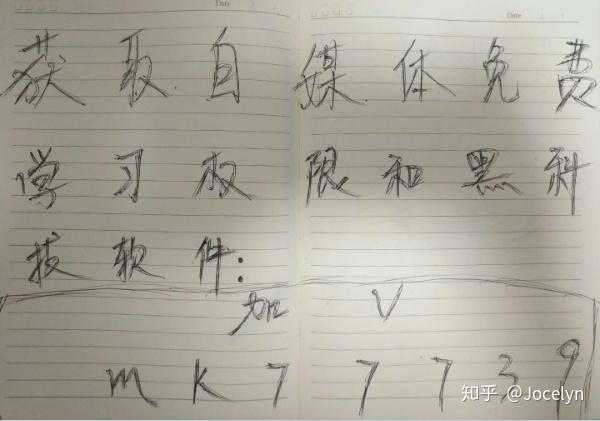 Date
Date
获取自媒体免费
学习权限和黑科
技软件:
加 V
mk77739
知乎 @Jocelyn